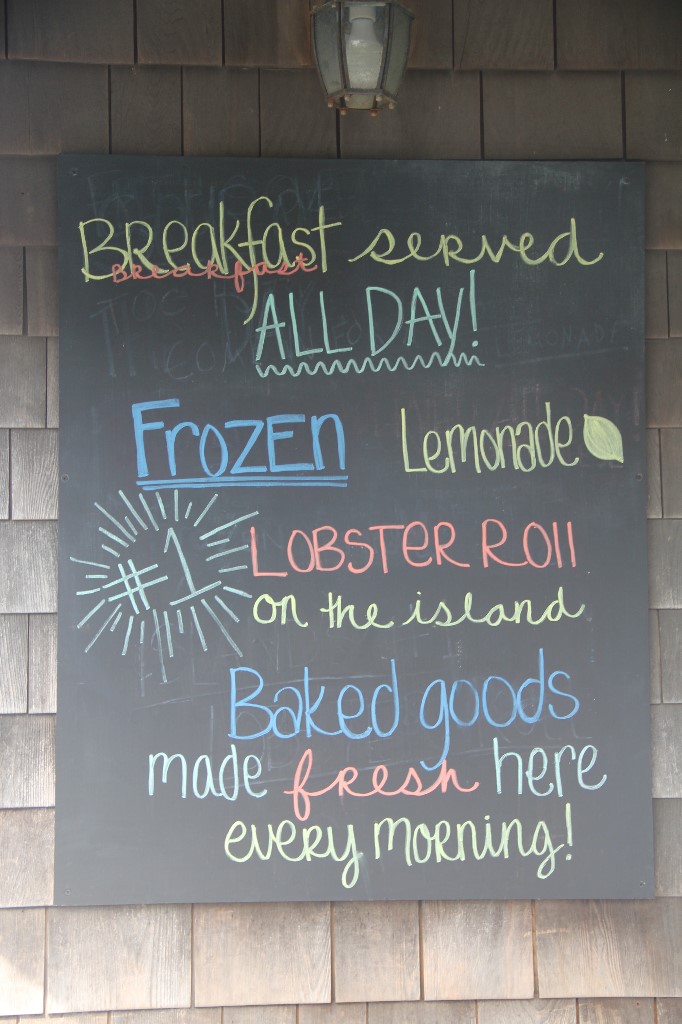 Breakfast served
Breakfast
ALL DAY!
Frozen Lemonade
#1 LOBSTER ROll
on the island
Baked goods
made fresh here
every morning!